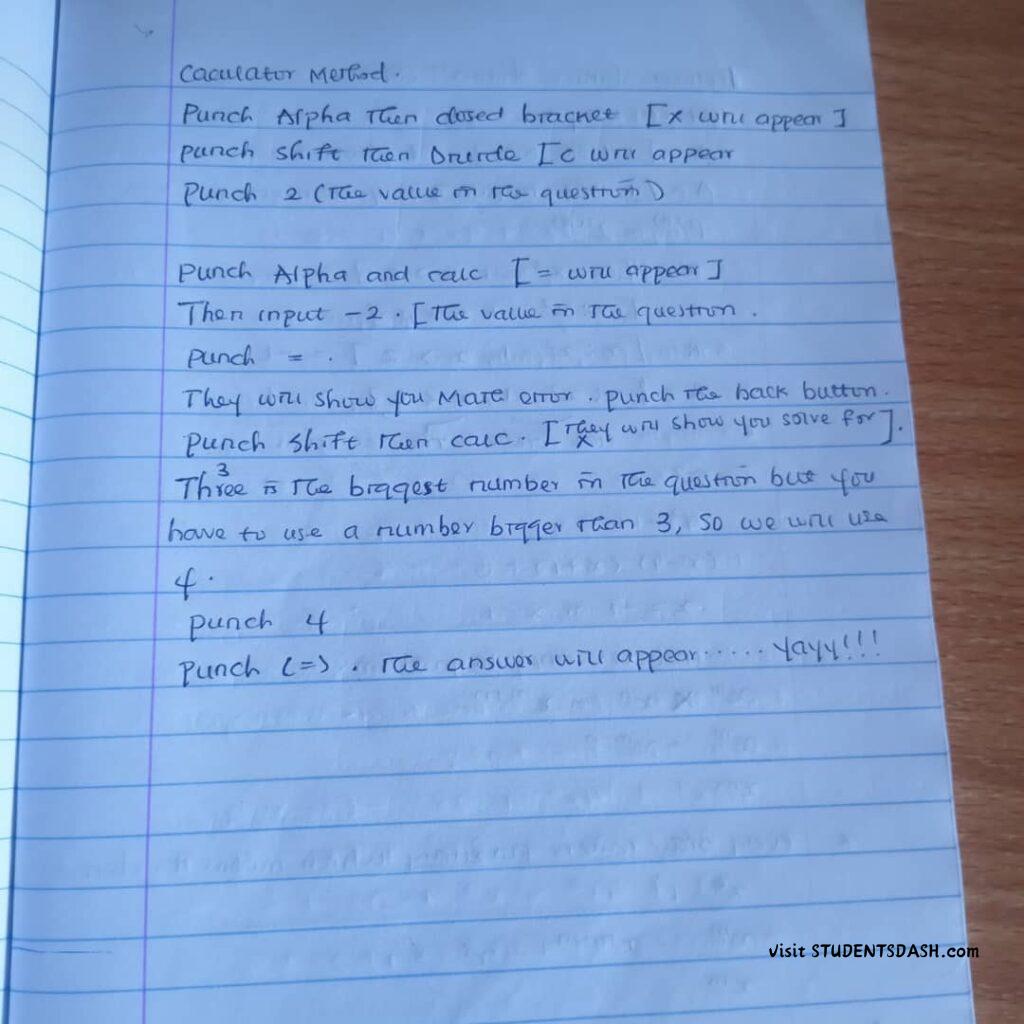 Caculator Method.
Punch Alpha then closed bracket [x will appear]
punch shift then Divide [C will appear
Punch 2 (The value in the question)
Punch Alpha and calc [= will appear]
Then input -2. [The value in the question.
punch = .
They will show you Mate error. punch the back button.
Punch shift then calc. [They will show you solve for].
x
3
Three is the biggest number in the question but you
have to use a number bigger than 3, so we will use
4.
punch 4
punch (=). The answer will appear...... Yayy!!!
visit STUDENTSDASH.com